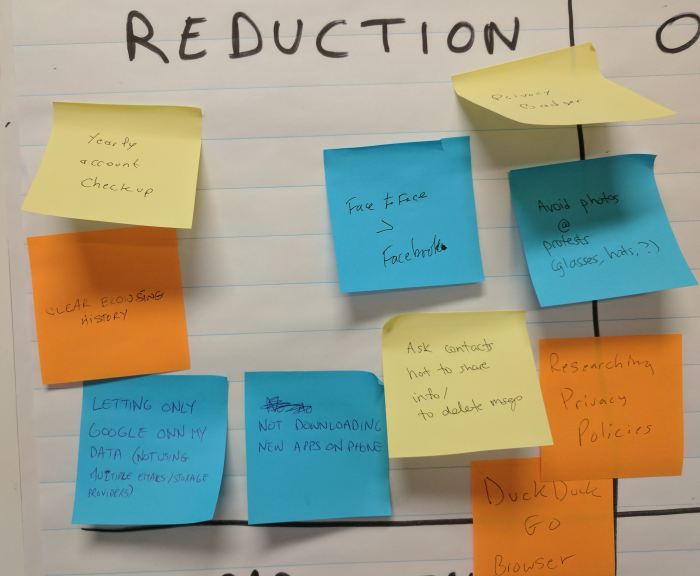 REDUCTION
O
Privacy
Badger
Yearly
account
Checkup
Face to Face
>
Facebook
Avoid photos
@
protests
(glasses, hats, ?)
CLEAR BROWSING
HISTORY
Ask contacts
not to share
info/
to delete msgs
Researching
Privacy
Policies
LETTING ONLY
GOOGLE OWN MY
DATA (NOT USING
MULTIPLE EMAILS/STORAGE
PROVIDERS)
NOT DOWNLOADING
NEW APPS ON PHONE
DuckDuck
GO
Browser